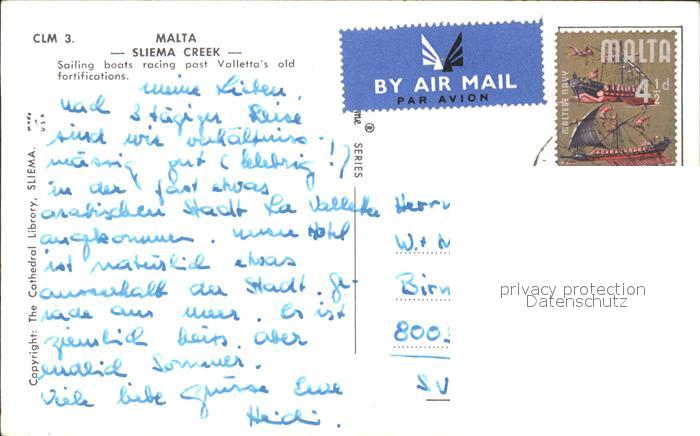 CLM 3.
MALTA
— SLIEMA CREEK —
Sailing boats racing past Valletta's old
fortifications.
BY AIR MAIL
PAR AVION
MALTA
4½d
MALTESE NAVY
meine Lieben,
nach 3 tägiger Reise
sind wir verhältnis-
mässig gut (klebrig!)
in der fast etwas
arabischen Stadt La Valletta
angekommen. unser Hotel
ist natürlich etwas
ausserhalb der Stadt. ge-
rade am meer. Es ist
ziemlich heiss. aber
endlich Sommer.
Viele liebe Grüsse Eure
Heidi.
Copyright: The Cathedral Library, SLIEMA.
USA
® SERIES
Herrn
W. + M
Birm
800
SV
privacy protection
Datenschutz